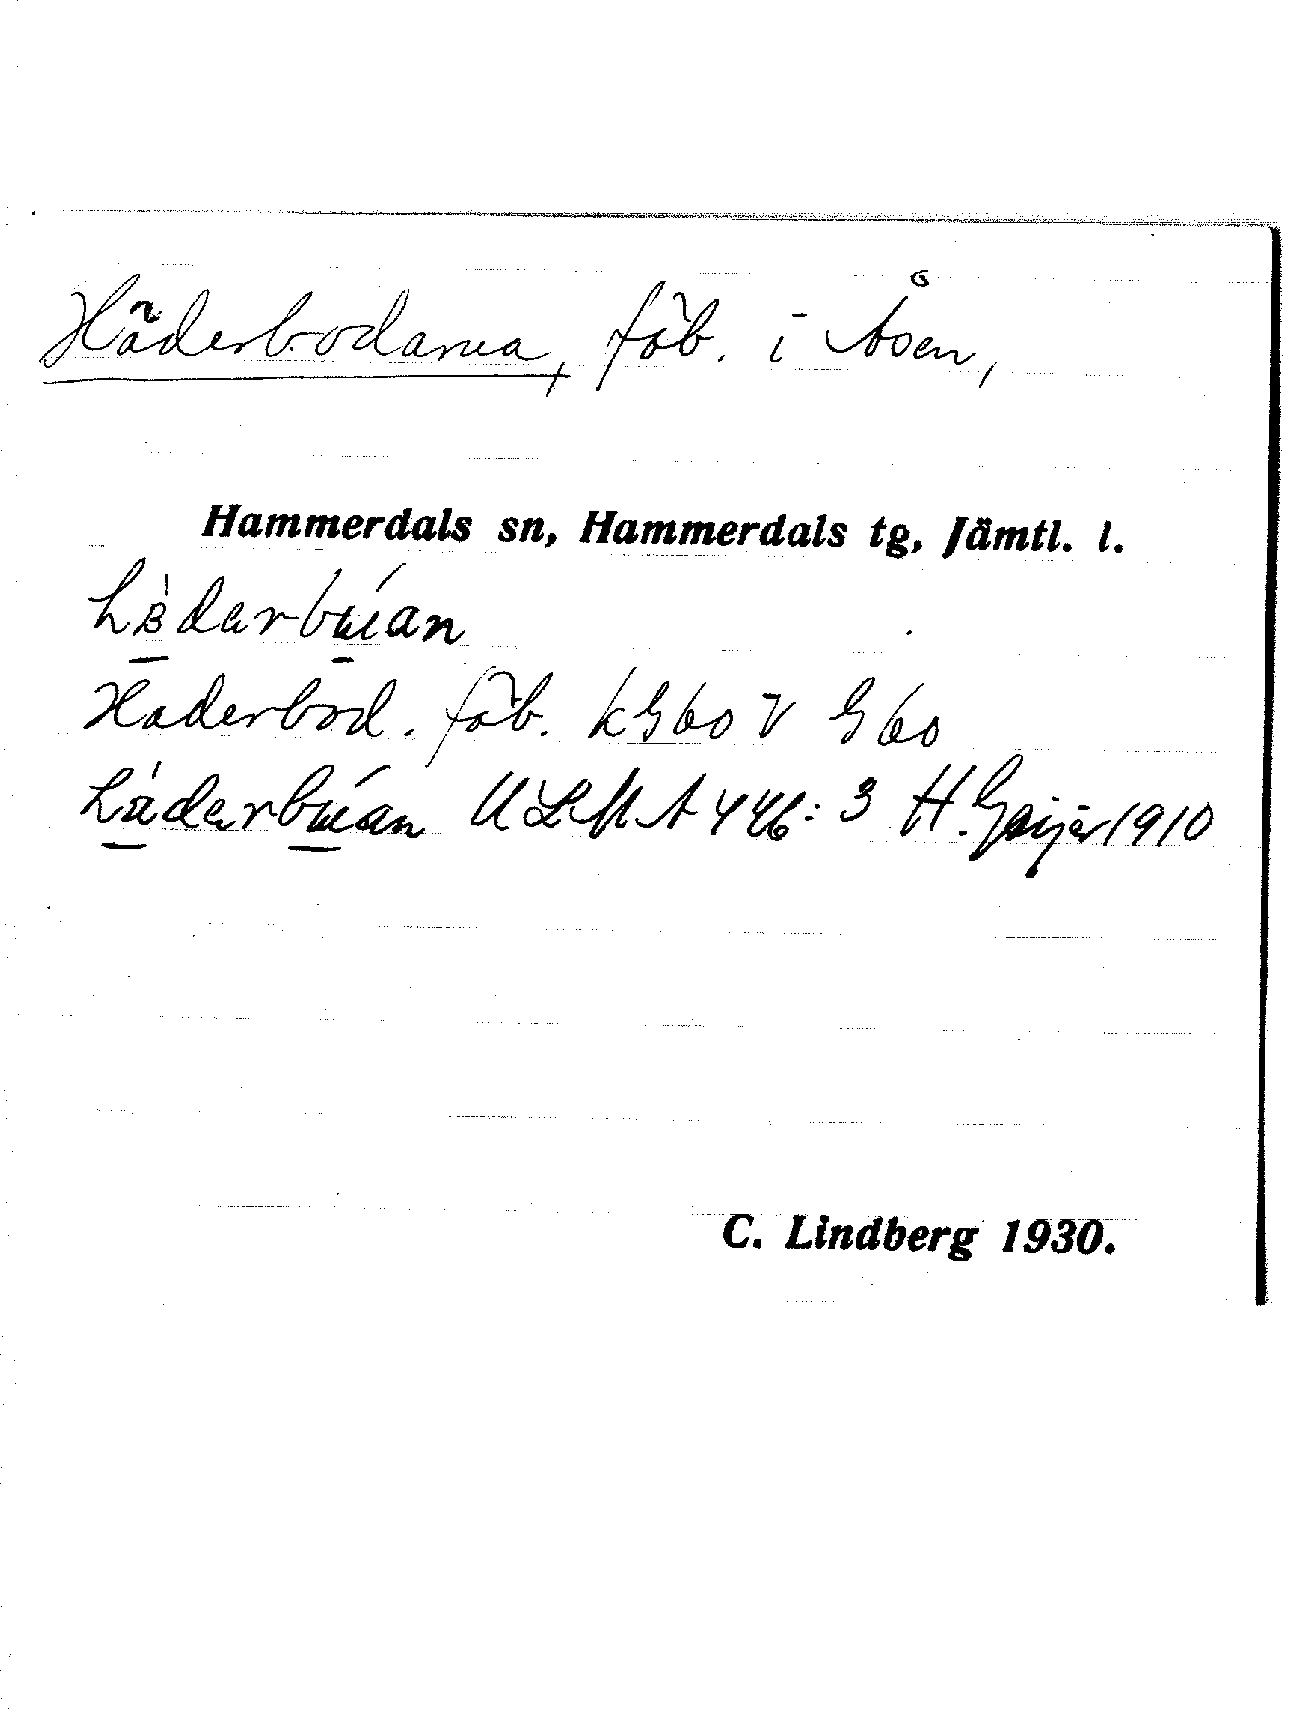 Häderbodarna, fäb. i Åsen,
Hammerdals sn, Hammerdals tg, Jämtl. l.
Haderbod. fäb. kG60 V G60
ULMA 446:3 H. Geijer 1910
C. Lindberg 1930.